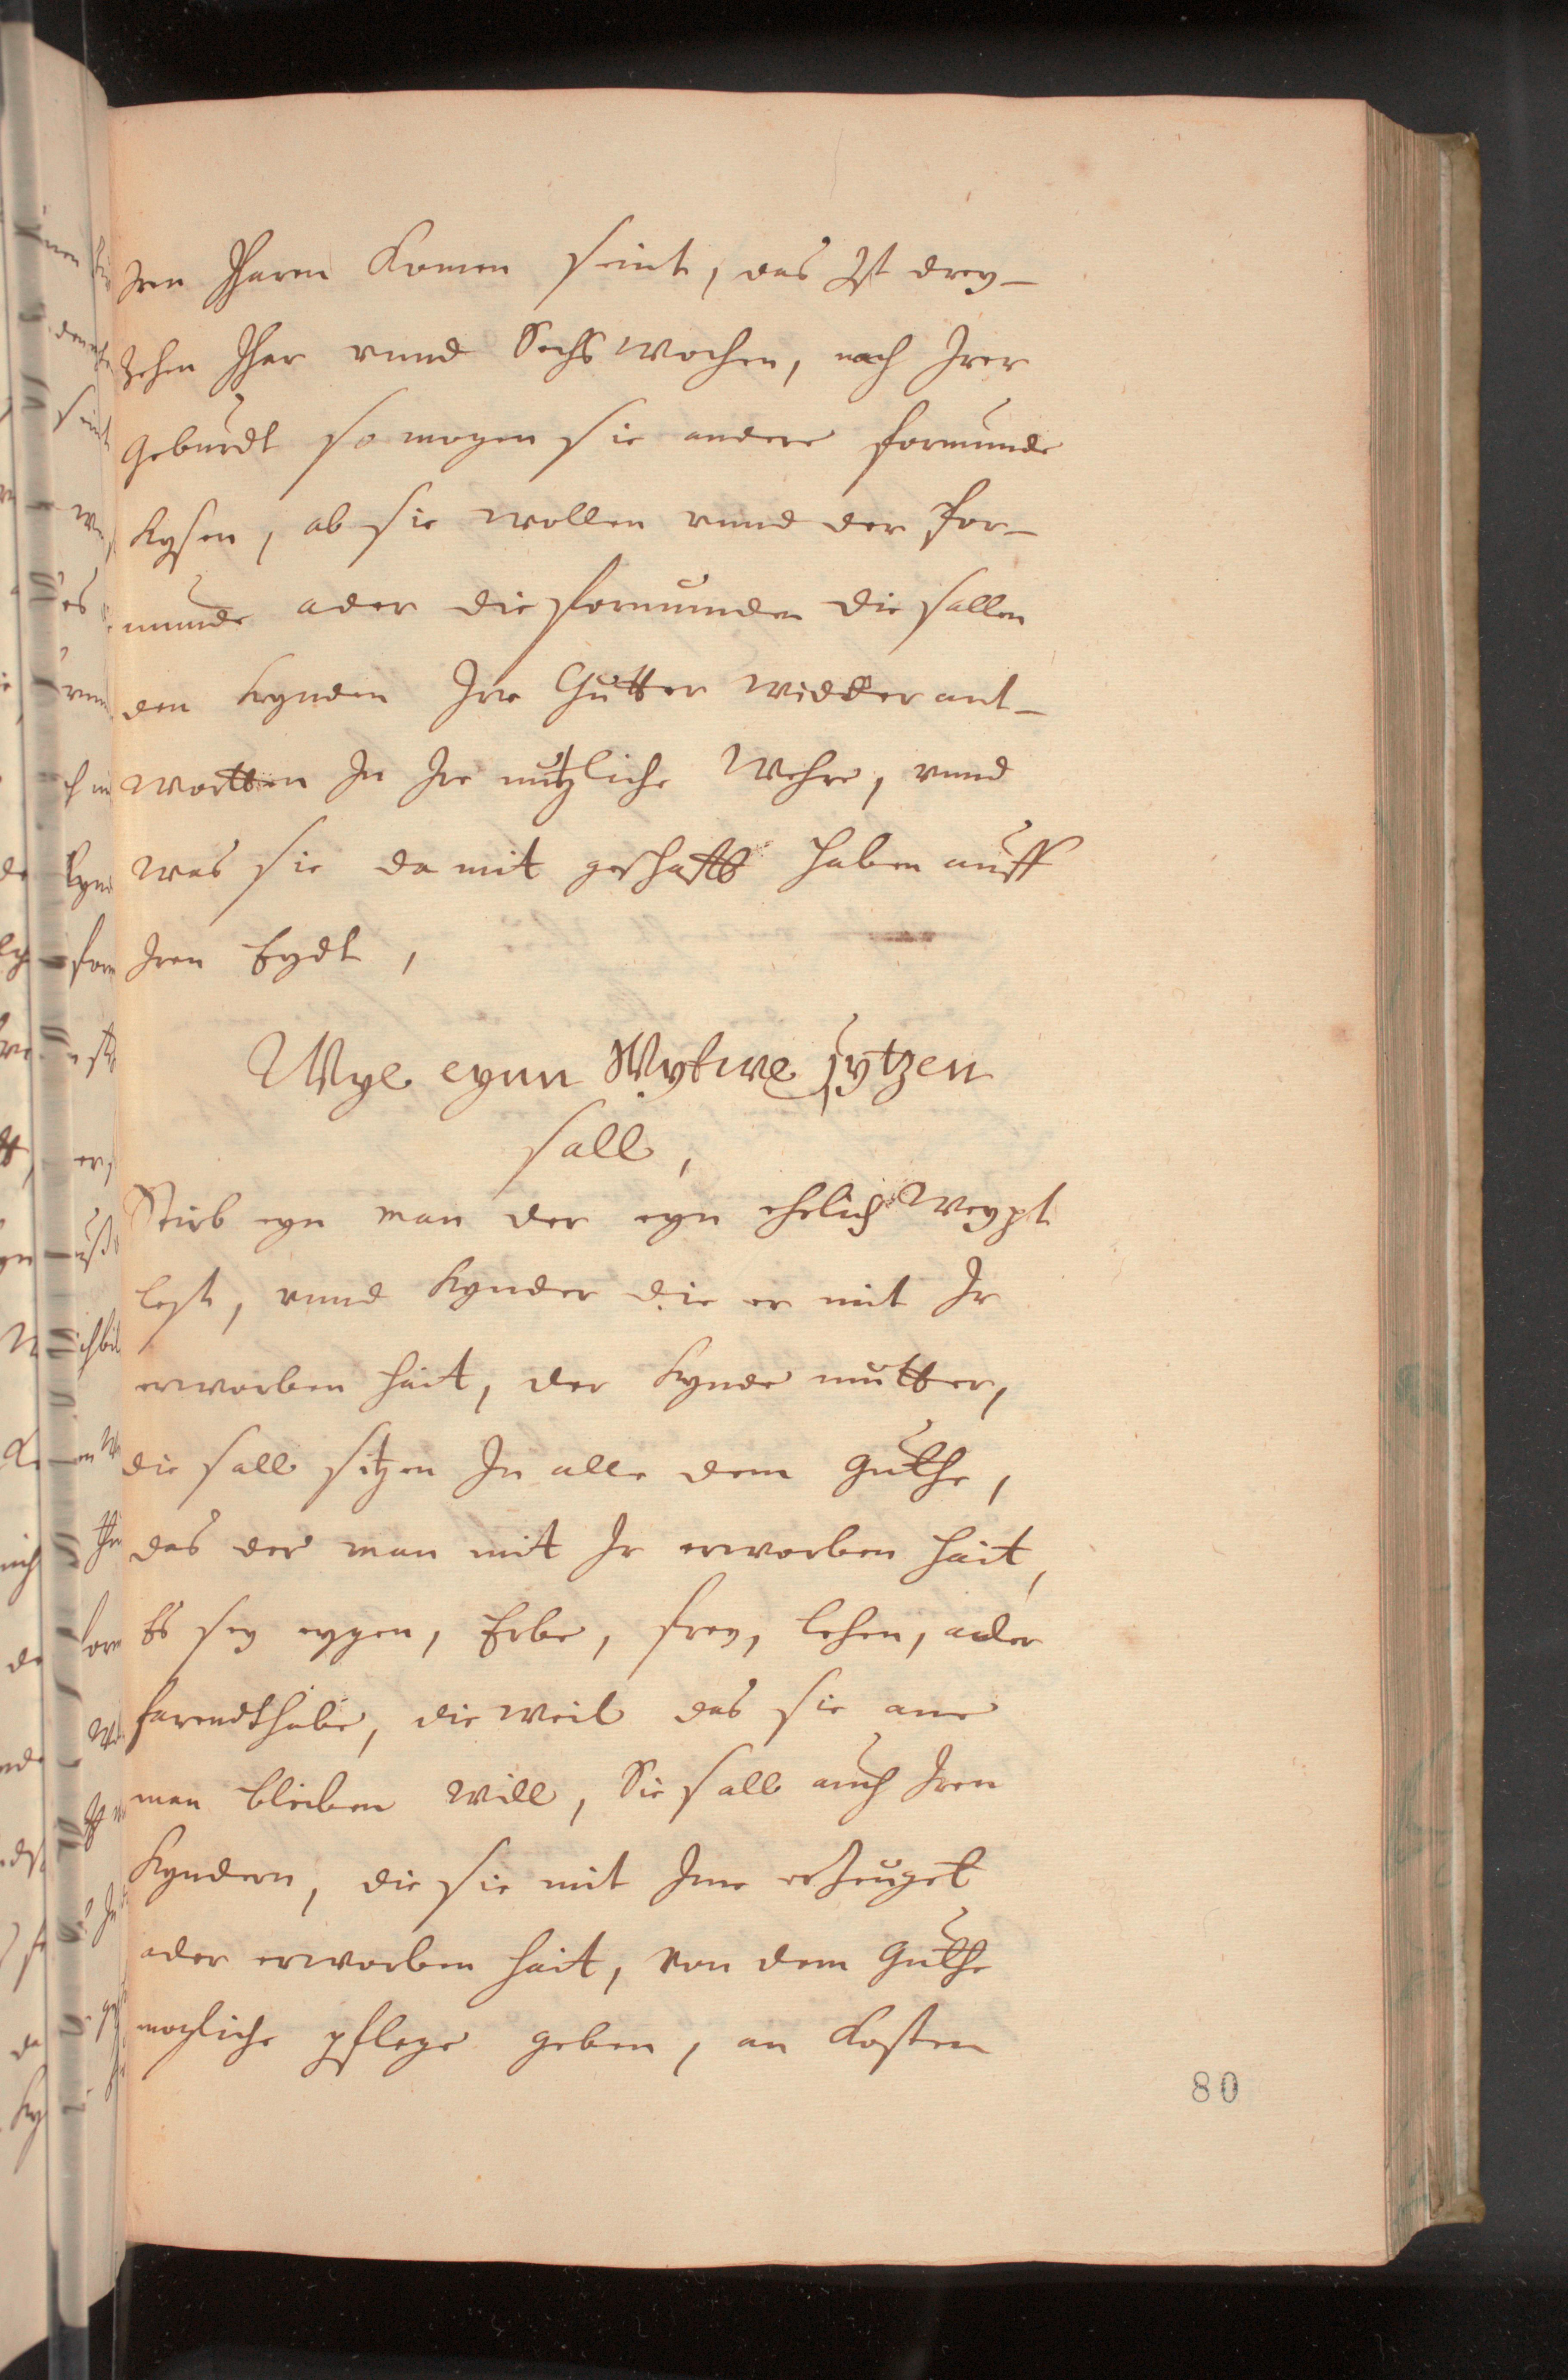 Iren Jharen komen seint, das Ist drey-
zehen Jhar unnd Sechs wochen, nach Irer
geburdt so mogen sie andere formunde
kysen, ab sie wollen unnd der for-
munde ader die formunden die sallen
den kynden Ire Gutter widder ant-
wortten In Ire nutzliche Wehre, unnd
was sie da mit geschafft haben auff
Iren Eydt,
Wye eynn Wytwe sytzen
sall,
Stirb eyn man der eyn ehelich Weypt
lest, unnd kynder die er mit Ir
erworben hait, der kynde mutter,
die sall sitzen In alle dem guthe,
das der man mit Ir erworben hait,
Es sey eygen, Erbe, frey, lehen, ader
farendthabe, die weil das sie ane
man bleiben will, Sie sall auch Iren
kyndern, die sie mit Ime erzeuget
ader erworben hait, von dem guthe
mogliche pflege geben, an kosten
80